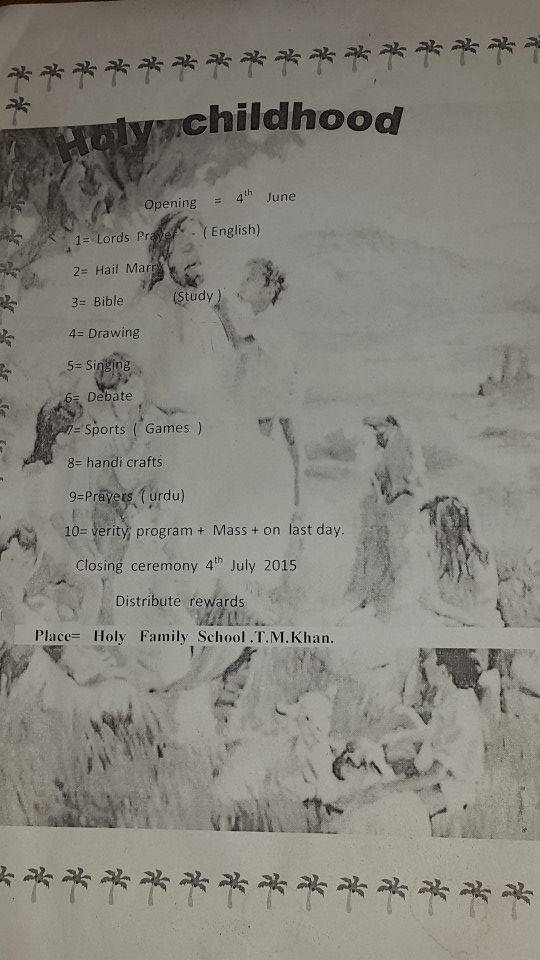 Holy childhood
Opening = 4th June
1= Lords Prayer - ( English)
2= Hail Marry
3= Bible (Study )
4= Drawing
5= Singing
6= Debate
7= Sports ( Games )
8= handi crafts
9=Prayers ( urdu)
10= verity program + Mass + on last day.
Closing ceremony 4th July 2015
Distribute rewards
Place= Holy Family School .T.M.Khan.